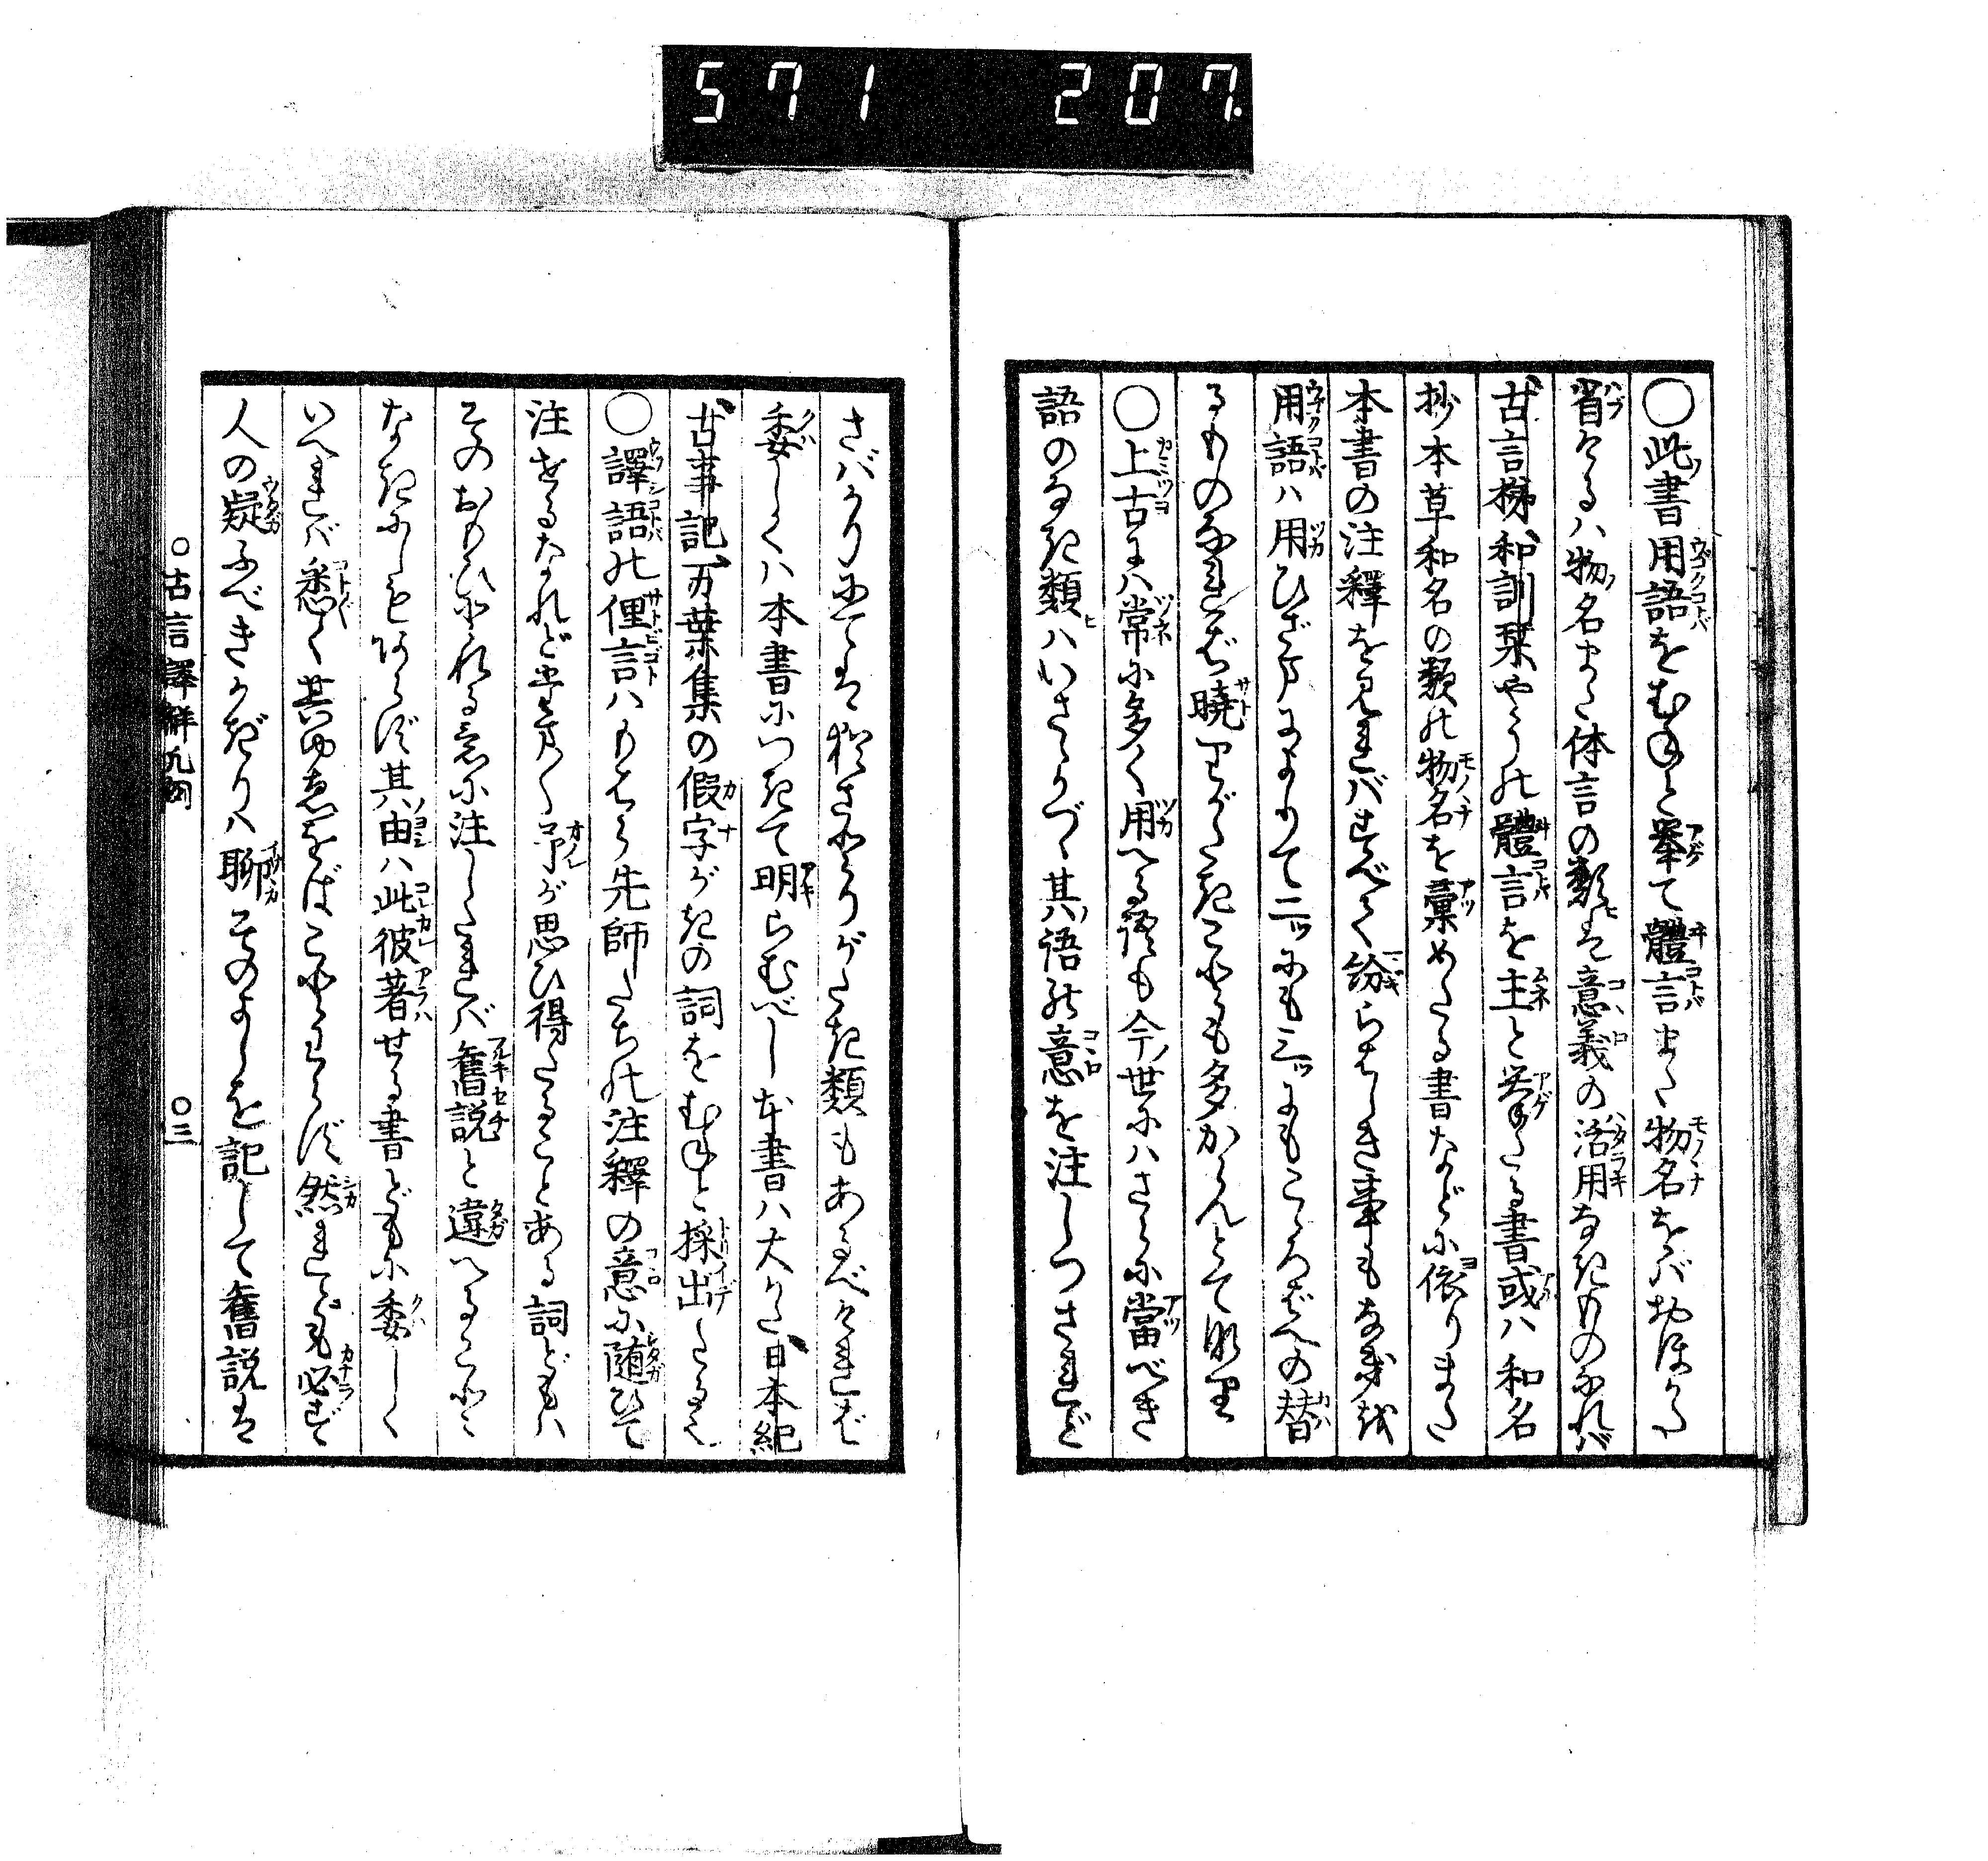 571 207.
○此書用語をむねと擧て體言また物名をバおほかた
省けるハ物名また体言の類は意義の活用なきものなれバ
古言梯和訓栞やうの體言を主と挙たる書或ハ和名
抄本草和名の類の物名を彙めたる書などに依りまた
本書の注釋を見れバすべて紛らはしき事もなきを
用語ハ用ひざまによりて二ツにも三ツにもこゝろばへの替
るものなれば曉りがたきことも多からんとて也
○上古にハ常に多く用へる語も今ノ世にハさらに當べき
語のなき類ハいさゝかづゝ其語の意を注しつされど
さバかりにては猶さとりがたき類もあるべければ
委しくハ本書につきて明らむべし本書ハ大かた日本紀
古事記万葉集の假字がきの詞をむねと採出たるなり
○譯語の俚言ハもはら先師たちの注釋の意に随ひて
注せるなれどまゝ予が思ひ得たることある詞どもハ
そのおもひとれる意に注したれバ舊説と違へること
なきにしもあらず其由ハ此彼著せる書どもに委しく
いへれバ悉く其ゆゑをばことわらず然れども必ず
人の疑ふべきかぎりハ聊そのよしを記して舊説は
○古言譯解凡例 ○三